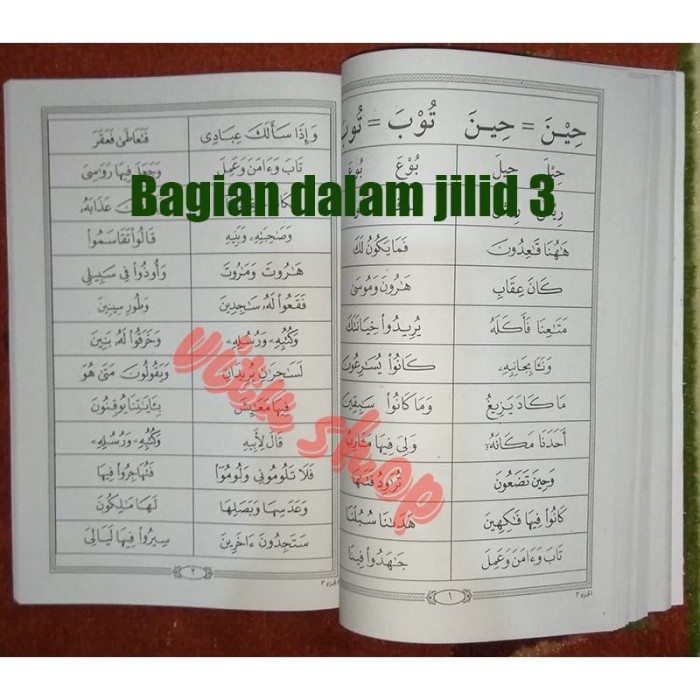 Bagian dalam jilid 3
Shop
حِيْنَ = حِينَ تُوْبَ = تُوبَ
حِيْلَ حِيلَ بُوْعَ بُوعَ
هَٰهُنَا قَٰعِدُونَ فَمَا يَكُونُ لَكَ
كَانَ عِقَابِ هَٰرُونَ وَمُوسَىٰ
مَتَٰعِنَا فَأَكَلَهُ يُرِيدُوا۟ خِيَانَتَكَ
وَنَـَٔا بِجَانِبِهِۦ كَانُوا۟ يُسَٰرِعُونَ
مَا كَادَ يَزِيغُ وَمَا كَانُوا۟ سَٰبِقِينَ
أَحَدَنَا مَكَانَهُۥ وَلِىَ فِيهَا
وَحِينَ تَضَعُونَ
كَانُوا۟ فِيهَا فَٰكِهِينَ هَدَىٰنَا سُبُلَنَا
تَابَ وَءَامَنَ وَعَمِلَ جَٰهَدُوا۟ فِينَا
١
الجزء ٣
وَإِذَا سَأَلَكَ عِبَادِى فَتَعَاطَىٰ فَعَقَرَ
تَابَ وَءَامَنَ وَعَمِلَ وَجَعَلَ فِيهَا رَوَٰسِىَ
عَذَابَهُۥ
وَصَٰحِبَتِهِۦ وَبَنِيهِ قَالُوا۟ تَقَاسَمُوا۟
هَٰرُوتَ وَمَٰرُوتَ وَأُوذُوا۟ فِى سَبِيلِى
فَقَعُوا۟ لَهُۥ سَٰجِدِينَ وَطُورِ سِينِينَ
وَكُتُبِهِۦ وَرُسُلِهِۦ وَخَرَقُوا۟ لَهُۥ بَنِينَ
لَسَٰحِرَٰنِ يُرِيدَانِ وَيَقُولُونَ مَتَىٰ هُوَ
فِيهَا مَعَٰيِشَ بِـَٔايَٰتِنَا يُوقِنُونَ
قَالَ لِأَبِيهِ وَكُتُبِهِۦ وَرُسُلِهِۦ
فَلَا تَلُومُونِى وَلُومُوٓا۟ فَتُهَاجِرُوا۟ فِيهَا
وَعَدَسِهَا وَبَصَلِهَا لَهَا مَٰلِكُونَ
سَتَجِدُونَ ءَاخَرِينَ سِيرُوا۟ فِيهَا لَيَالِىَ
٢
الجزء ٣